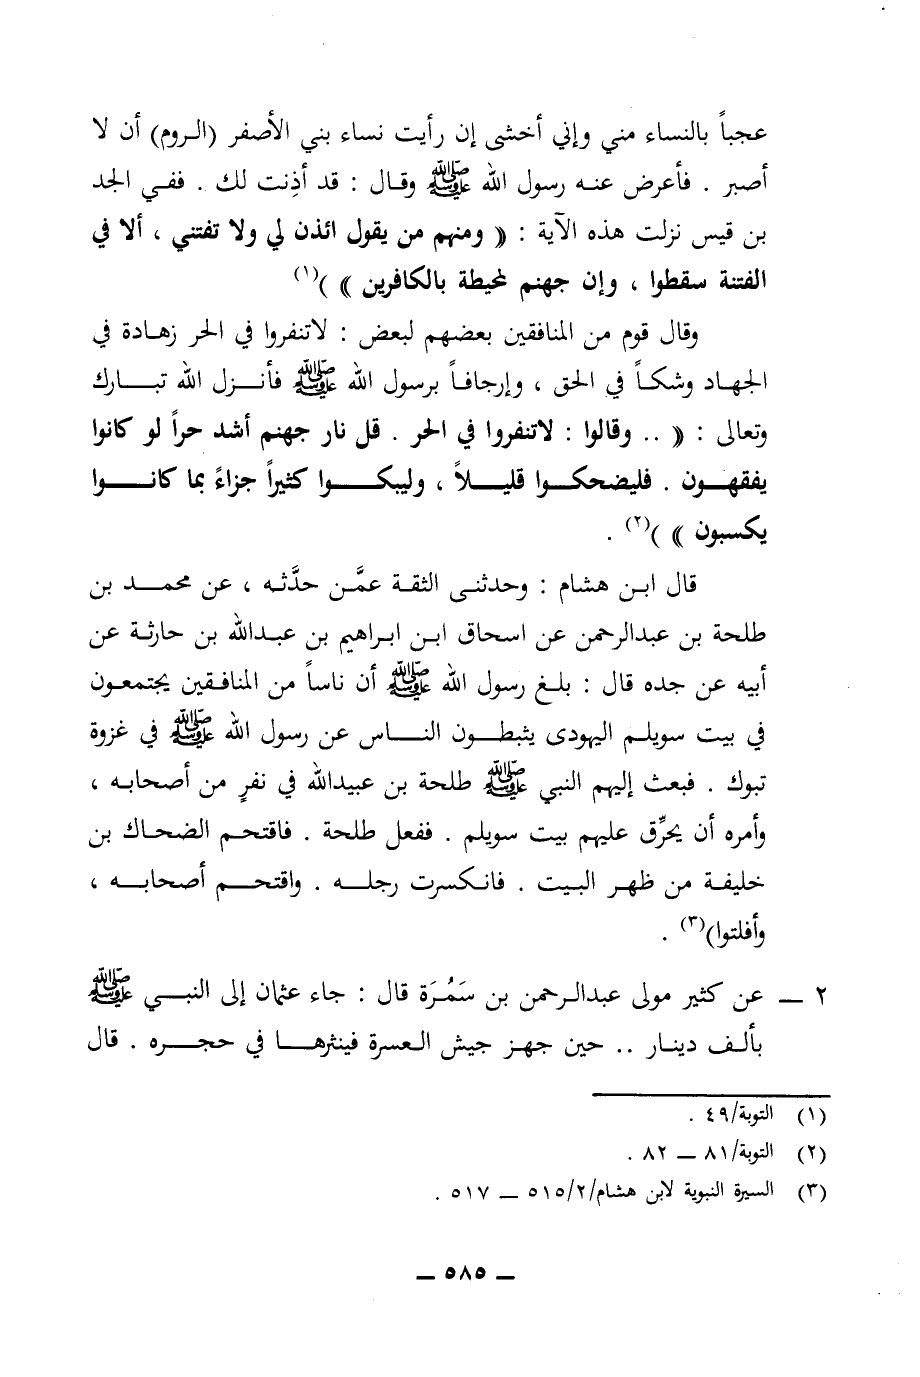 عجباً بالنساء مني وإني أخشى إن رأيت نساء بني الأصفر (الروم) أن لا
أصبر . فأعرض عنه رسول الله ﷺ وقال : قد أذِنت لك . ففي الجد
بن قيس نزلت هذه الآية : ﴿ ومنهم من يقول ائذن لي ولا تفتني ، ألا في
الفتنة سقطوا ، وإن جهنم لمحيطة بالكافرين ﴾ )(١)
وقال قوم من المنافقين بعضهم لبعض : لاتنفروا في الحر زهادة في
الجهاد وشكاً في الحق ، وإرجافاً برسول الله ﷺ فأنزل الله تبارك
وتعالى : ﴿ .. وقالوا : لاتنفروا في الحر . قل نار جهنم أشد حراً لو كانوا
يفقهون . فليضحكوا قليلاً ، وليبكوا كثيراً جزاءً بما كانوا
يكسبون ﴾ )(٢) .
قال ابن هشام : وحدثنى الثقة عمَّن حدَّثه ، عن محمد بن
طلحة بن عبدالرحمن عن اسحاق ابن ابراهيم بن عبدالله بن حارثة عن
أبيه عن جده قال : بلغ رسول الله ﷺ أن ناساً من المنافقين يجتمعون
في بيت سويلم اليهودى يثبطون الناس عن رسول الله ﷺ في غزوة
تبوك . فبعث إليهم النبي ﷺ طلحة بن عبيدالله في نفرٍ من أصحابه ،
وأمره أن يحرِّق عليهم بيت سويلم . ففعل طلحة . فاقتحم الضحاك بن
خليفة من ظهر البيت . فانكسرت رجله . واقتحم أصحابه ،
وأفلتوا)(٣) .
٢ — عن كثير مولى عبدالرحمن بن سَمُرَة قال : جاء عثمان إلى النبي ﷺ
بألف دينار .. حين جهز جيش العسرة فينثرها في حجره . قال
(١) التوبة/٤٩ .
(٢) التوبة/٨١ — ٨٢ .
(٣) السيرة النبوية لابن هشام/٥١٥/٢ — ٥١٧ .
— ٥٨٥ —